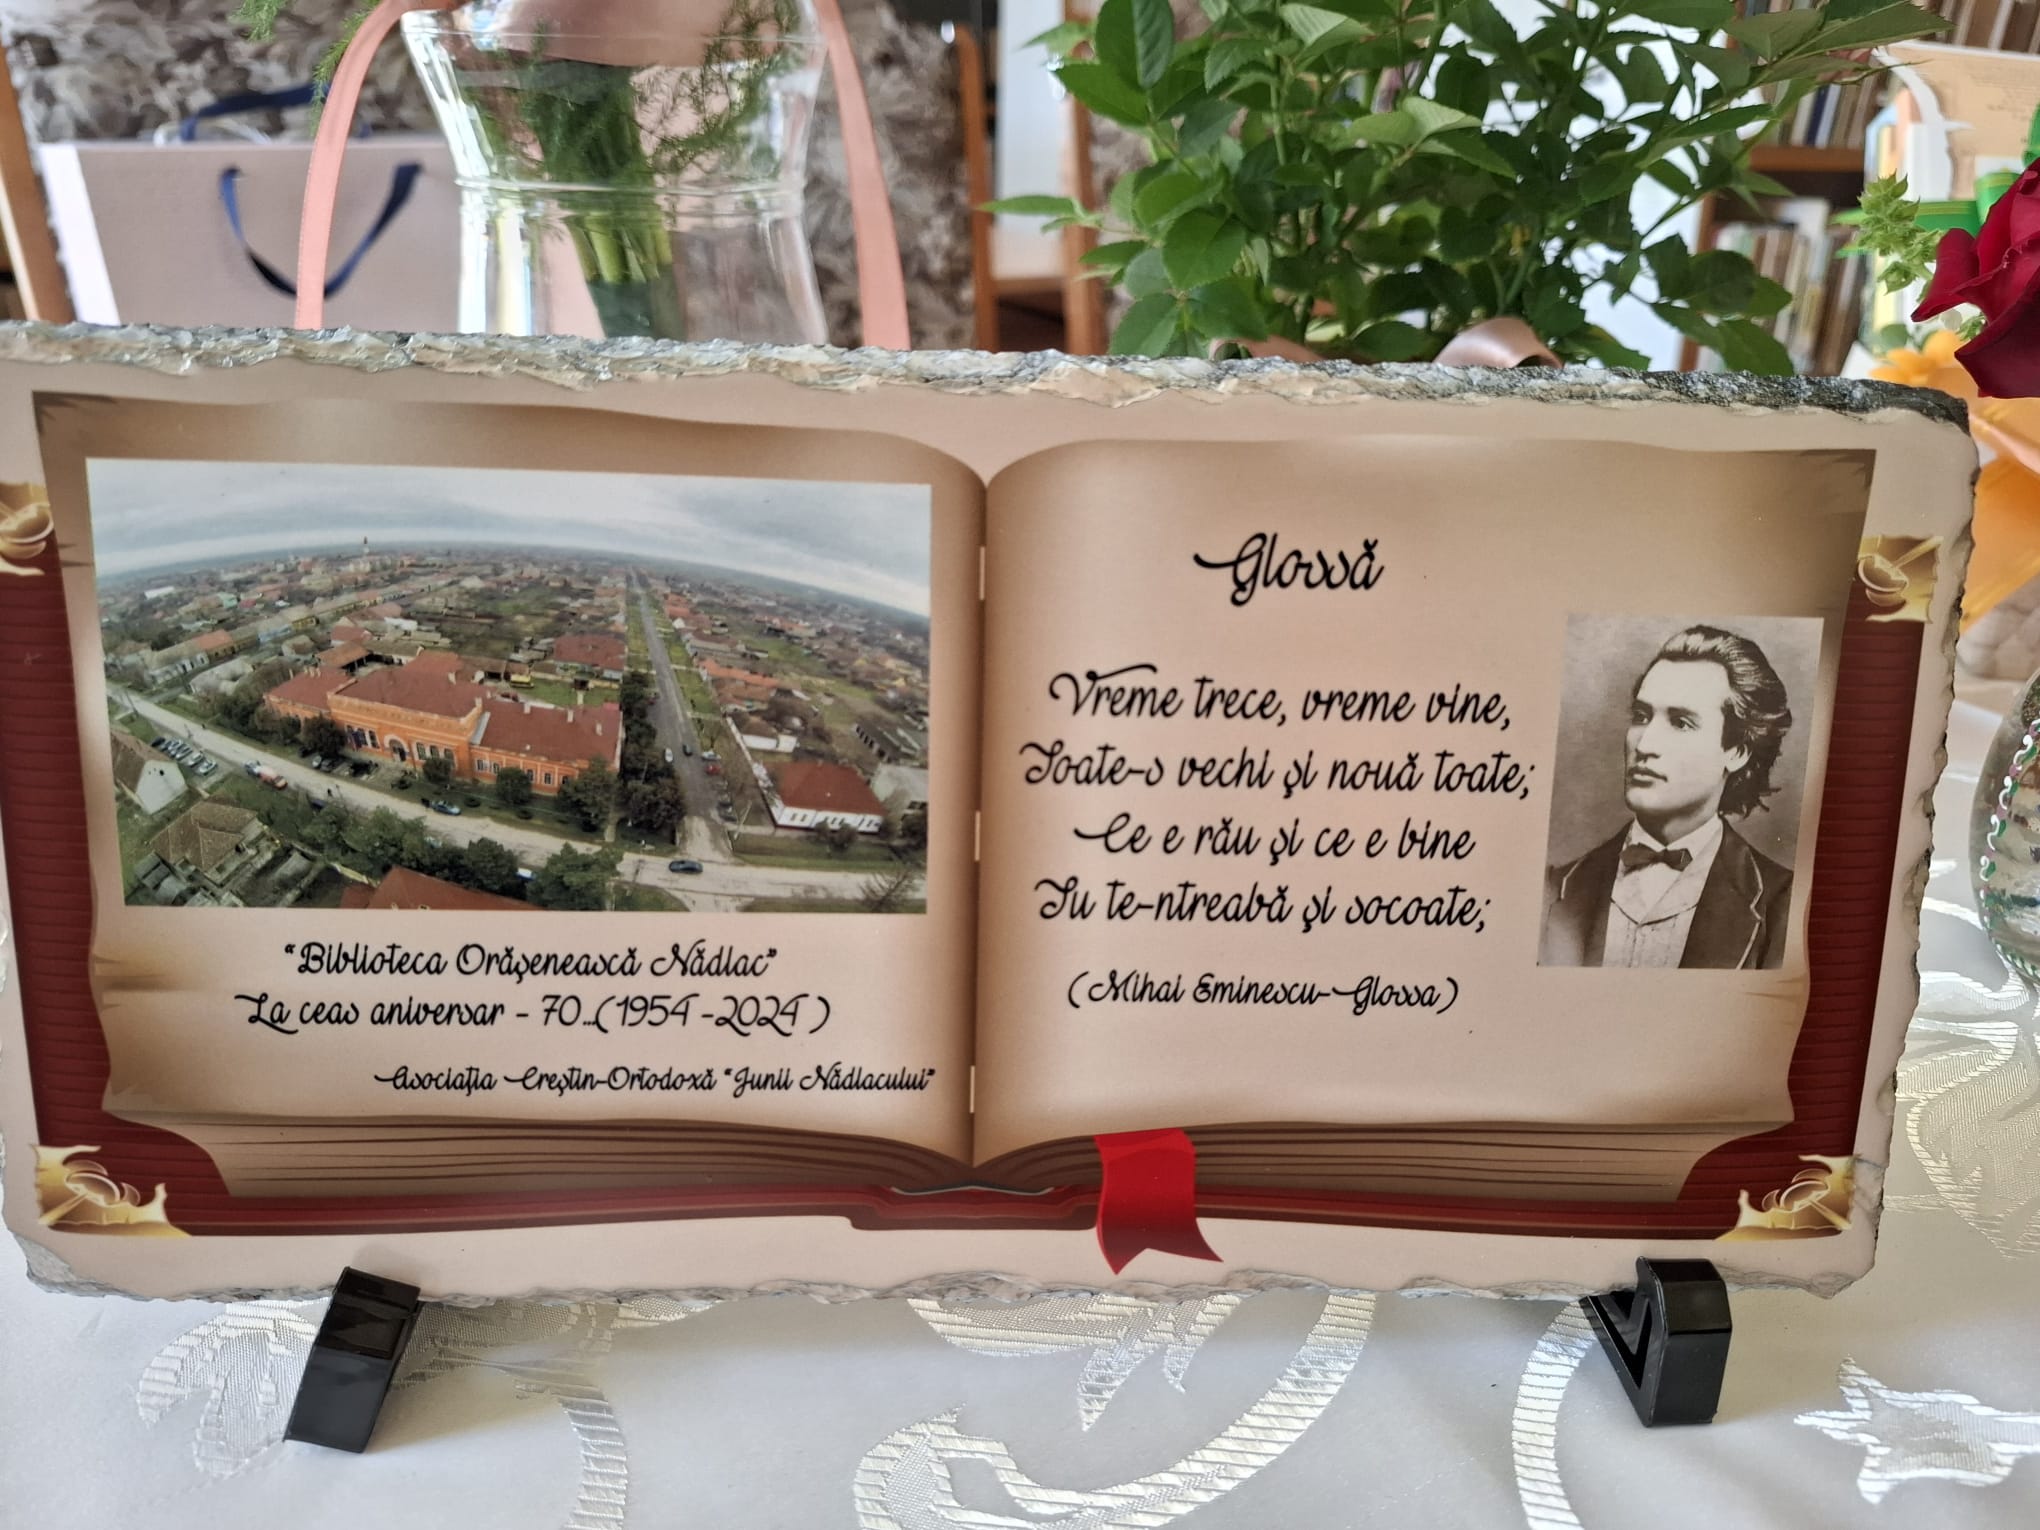 "Biblioteca Orășenească Nădlac"
La ceas aniversar - 70...(1954 -2024 )
Asociația Creștin-Ortodoxă "Junii Nădlacului"
Glossă
Vreme trece, vreme vine,
Toate-s vechi și nouă toate;
Ce e rău și ce e bine
Tu te-ntreabă și socoate;
(Mihai Eminescu-Glossa)